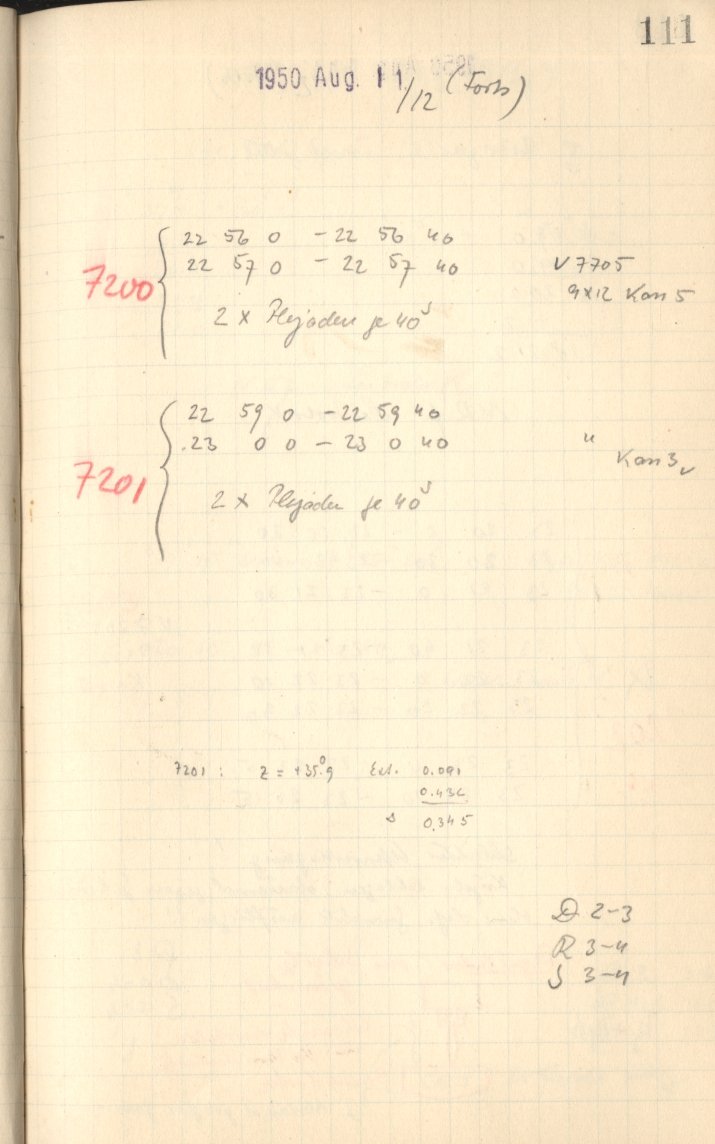 111
1950 Aug. 11/12 (Forts)
22 56 0 - 22 56 40
7200 22 57 0 - 22 57 40 V7705
9x12 Kas 5
2 x Plejaden je 40s
22 59 0 - 22 59 40
23 0 0 - 23 0 40 "
Kas 3
7201
2 x Plejaden je 40s
7201: z = +35°.9 Ext. 0.091
0.436
Δ 0.345
D 2-3
R 3-4
S 3-4